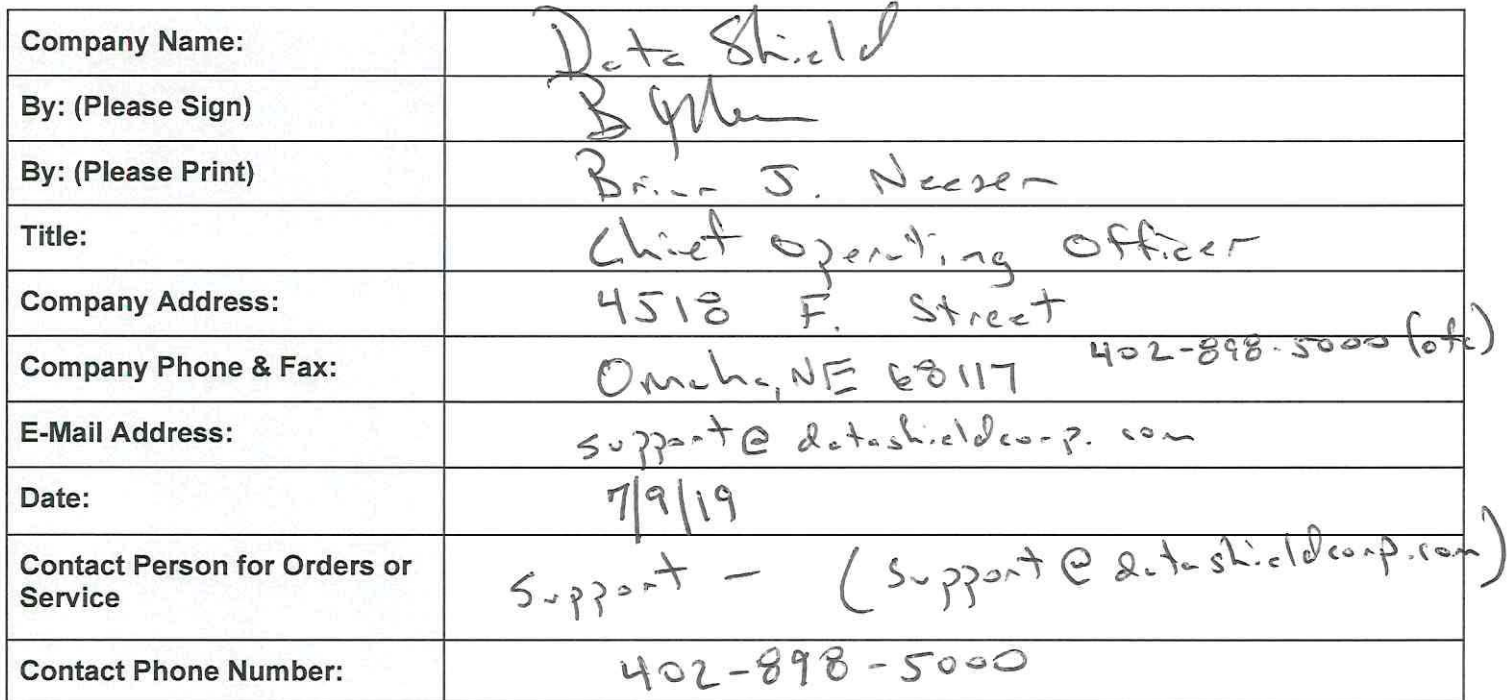 Company Name: Data Shield
By: (Please Sign)
By: (Please Print) Brian J. Neesen
Title: Chief Operating Officer
Company Address: 4518 F. Street
Company Phone & Fax: Omaha, NE 68117 402-898-5000 (ofc)
E-Mail Address: support@datashieldcorp.com
Date: 7/9/19
Contact Person for Orders or
Service Support - (Support@datashieldcorp.com)
Contact Phone Number: 402-898-5000